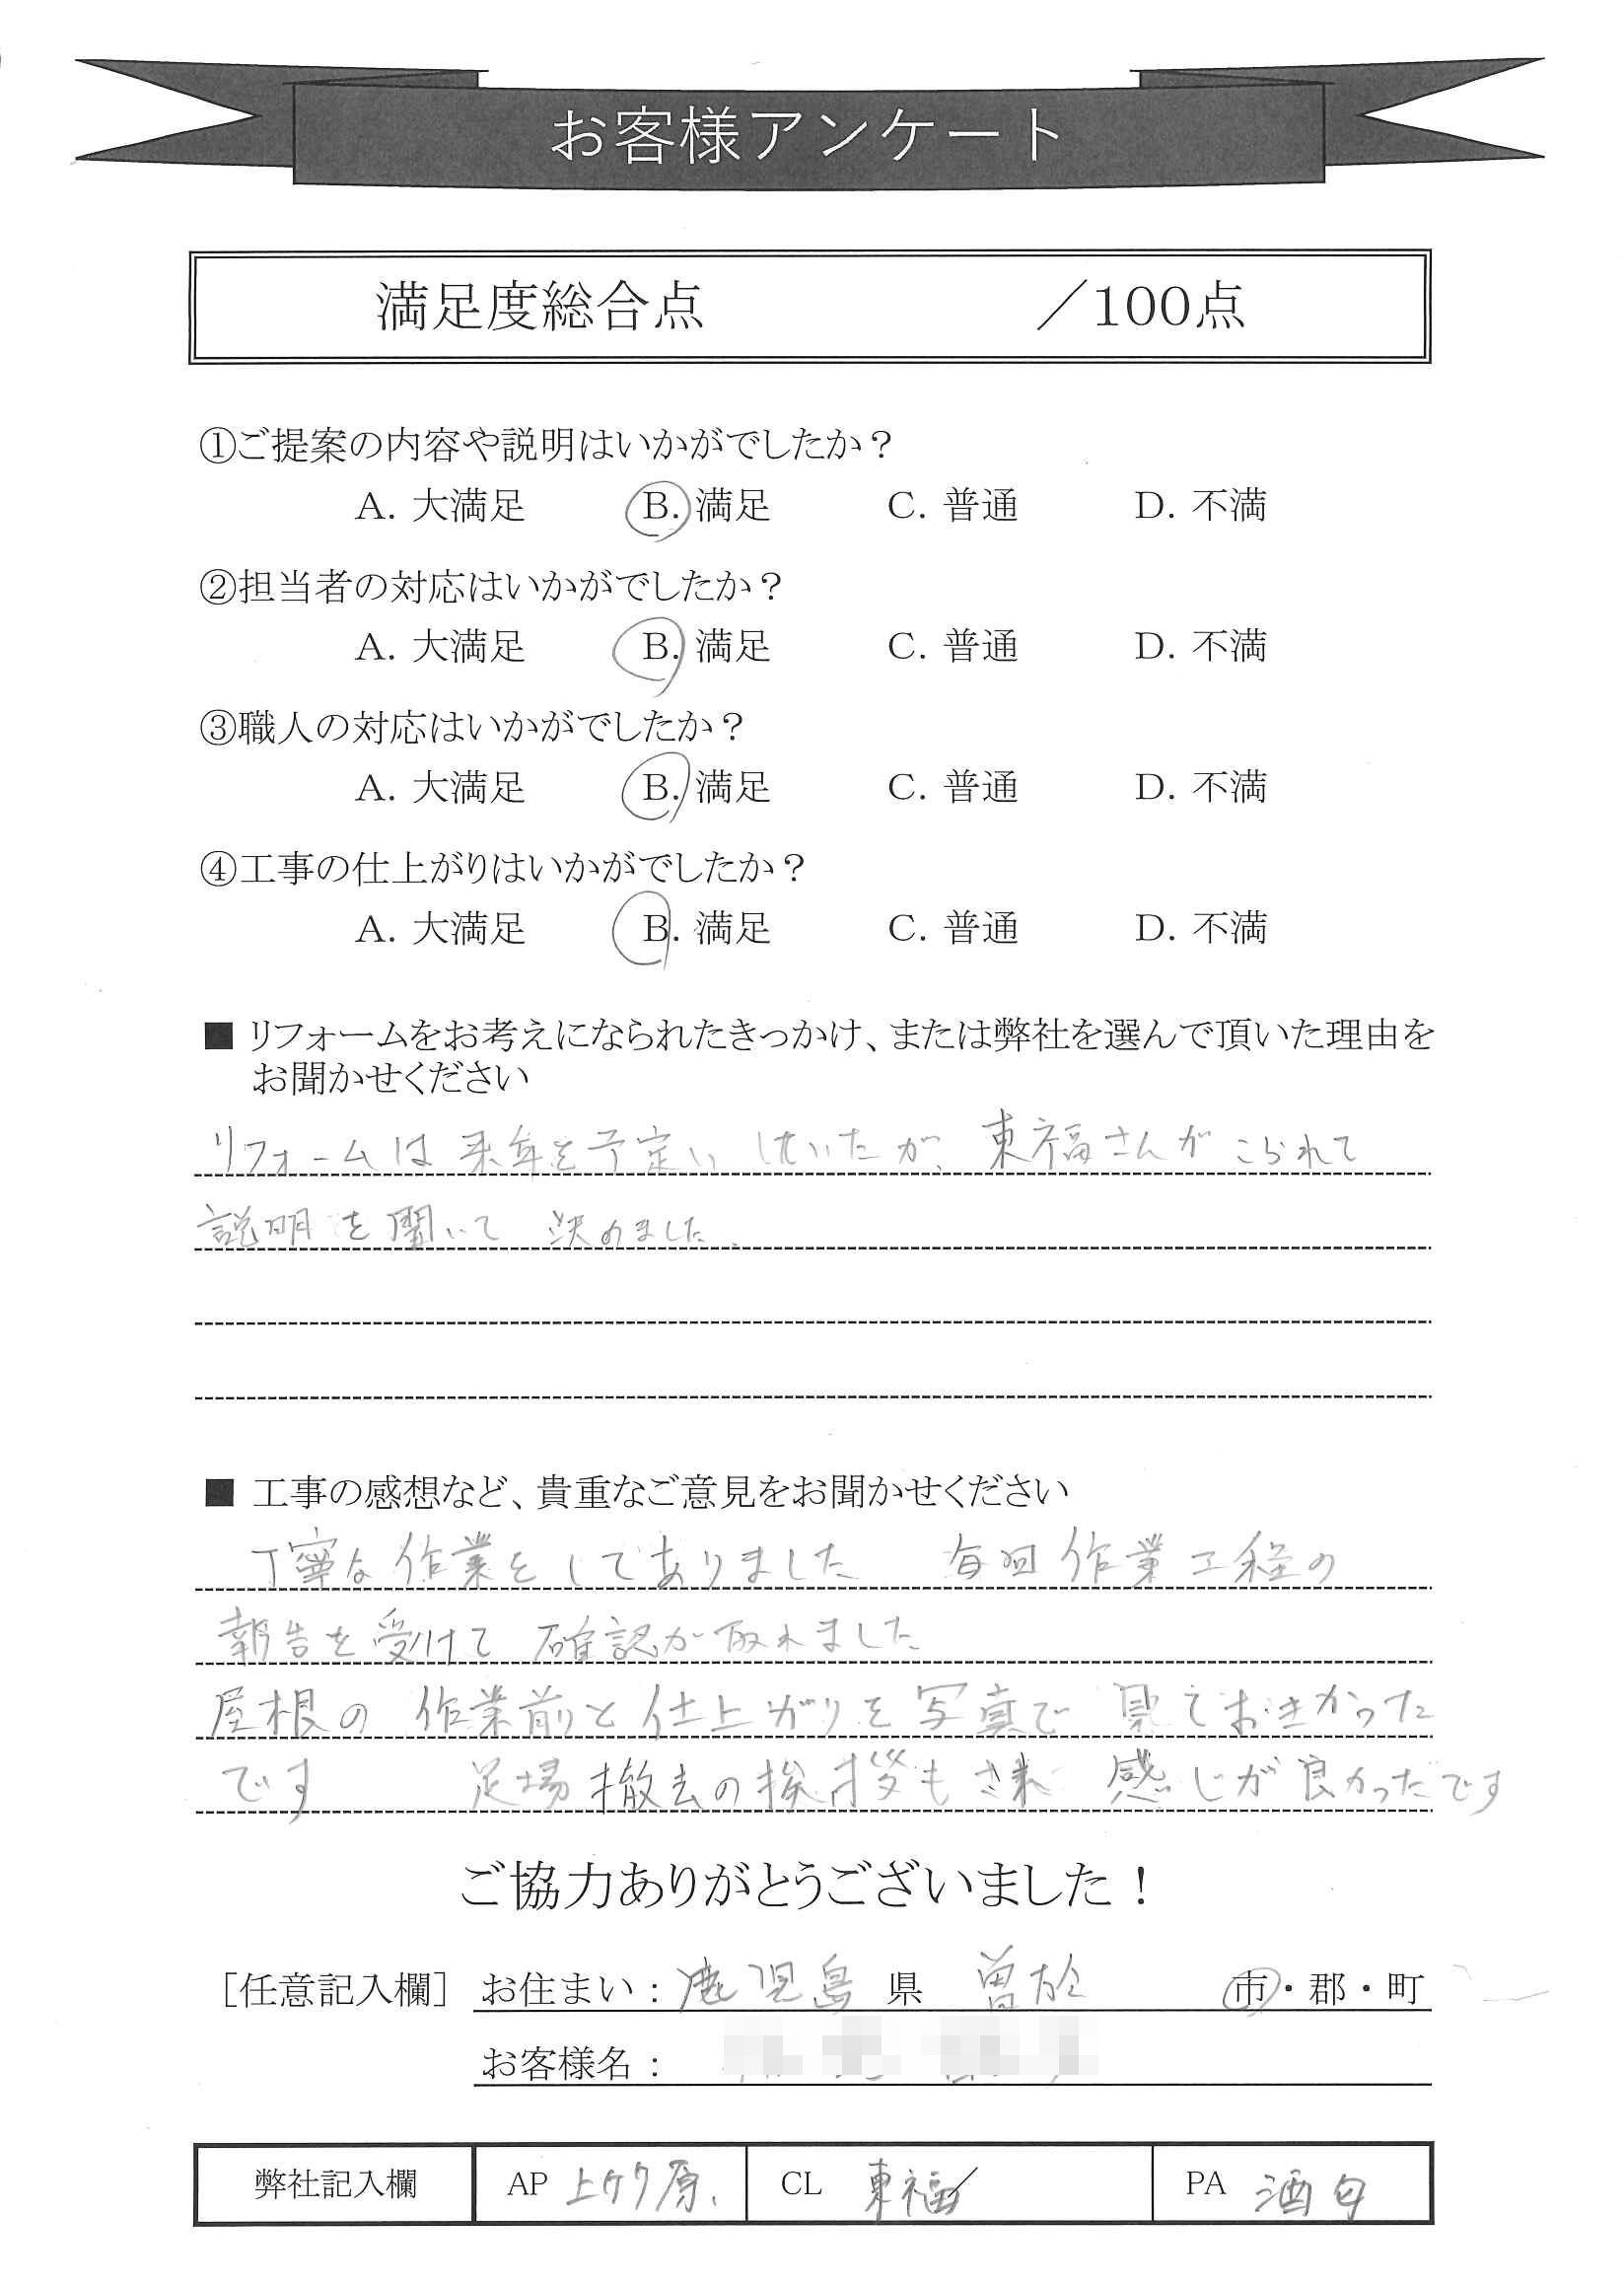 お客様アンケート
満足度総合点 ／100点
①ご提案の内容や説明はいかがでしたか？
A. 大満足 B. 満足 C. 普通 D. 不満
②担当者の対応はいかがでしたか？
A. 大満足 B. 満足 C. 普通 D. 不満
③職人の対応はいかがでしたか？
A. 大満足 B. 満足 C. 普通 D. 不満
④工事の仕上がりはいかがでしたか？
A. 大満足 B. 満足 C. 普通 D. 不満
■ リフォームをお考えになられたきっかけ、または弊社を選んで頂いた理由を
お聞かせください
リフォームは来年を予定 が、東福さんがこられて
説明を聞いて 決めました。
■ 工事の感想など、貴重なご意見をお聞かせください
丁寧な作業をしてありました 毎回作業工程の
報告を受けて 確認が取れました
屋根の 作業前と仕上がりを写真で 見ておきかった
です 足場撤去の挨拶もされ 感じが良かったです
ご協力ありがとうございました！
[任意記入欄] お住まい：鹿児島 県 曽於 市・郡・町
お客様名：
弊社記入欄 AP 上ケ原 CL 東福 PA 酒匂